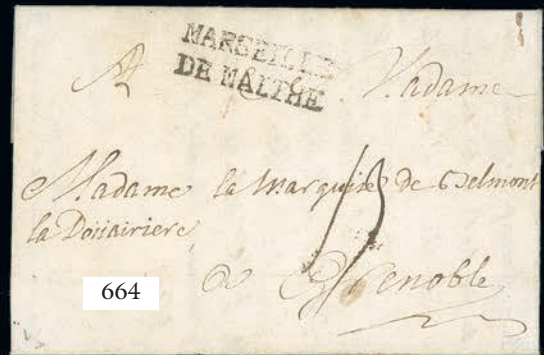 MARSEILLE
DE MALTHE
A Madame
Madame la Marquise de Belmont
la Doüairiere
13
a Grenoble
664